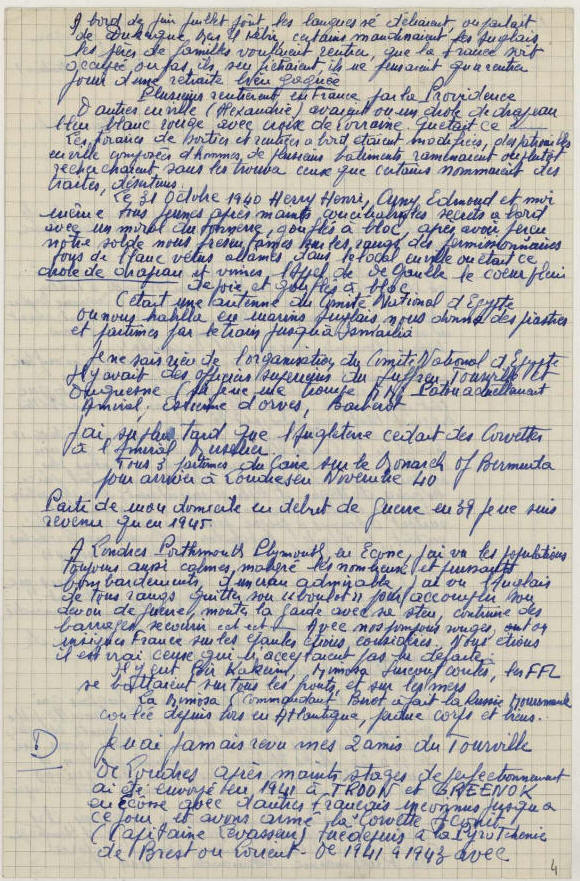 A bord de juin juillet sont les langues se déliaient, on parlait
de Dunkerque, Mers el Kébir, certains maudissaient les Anglais
les pères de familles voulaient rentrer, que la France soit
occupée ou pas, ils s'en fichaient ils ne pensaient qu'a rentrer
jouir d'une retraite bien gagnée
Plusieurs rentrèrent en France par la Providence
D'autres en ville (Alexandrie) avaient vu un drôle de drapeau
bleu blanc rouge avec croix de Lorraine qu'était ce
Les horaires de sorties et rentrées à bord étaient modifiés, des patrouilles
en ville composées d'hommes de plusieurs batiments, ramenaient ou plutot
recherchaient sans les trouver ceux que certains nommaient des
traitres, déserteurs.
Le 31 Octobre 1940 Herry Henri, Edmond et moi
même tous jeunes après maints conciliabules secrets à bord
avec un moral du tonnerre, gonflés à bloc, après avoir perçu
notre solde nous presentames sur les rangs des permissionnaires
tous de blanc vetus allames dans le local en ville ou était ce
drole de drapeau et vimes l'Appel de de Gaulle le coeur plein
de joie et gonflés à bloc
C'était une antenne du Comité National d'Egypte
on nous habilla en marins Anglais nous donna des piastres
et partimes par le train jusqu'à Ismaïlia
Je ne sais rien de l'organisation du Comité National d'Egypte
Il y avait des officiers superieurs du Suffren Tourville et
Duquesne Patou actuellement
Amiral, Estienne d'orves, Barberot
J'ai su plus tard que l'Angleterre cedait des Corvettes
à l'Amiral Muselier
Tous 3 partimes du Caire sur le Monarch of Bermuda
pour arriver à Londres en Novembre 40
Partie de mon domicile en début de Guerre en 39 je ne suis
revenu qu'en 1945
A Londres Porthmouth Plymouth, en Ecosse, j'ai vu les populations
toujours aussi calmes, malgré les nombreux et puissants
bombardements, d'un cran admirable, j'ai vu l'Anglais
de tous rangs quitter son "boulot" pour accomplir son
devoir de guerre, monter la garde avec sa sten, contruire des
barrages, secourir ect ect. Avec nos pompons rouges
insignes France sur les épaules étions considérés. Nous étions
il est vrai ceux qui n'acceptaient pas la défaite.
Il y eut Bir Hakeim, Mimosa Surcouf coulés, les FFL
se battaient sur tous les fronts et sur les mers
La Mimosa (Commandant Birot a fait la Russie Mourmansk
coulée depuis lors en Atlantique, perdue corps et biens.
Je n'ai jamais revu mes 2 amis du Tourville
De Londres après maints stages de perfectionnement
ai été envoyé en 1941 à TROON et GREENOK
en écosse avec d'autres Français inconnus jusqu'a
ce jour et avons armé la Corvette Aconit
(Capitaine Levasseur) tué depuis à la Pyrotechnie
de Brest ou Lorient. De 1941 à 1943 avec
4